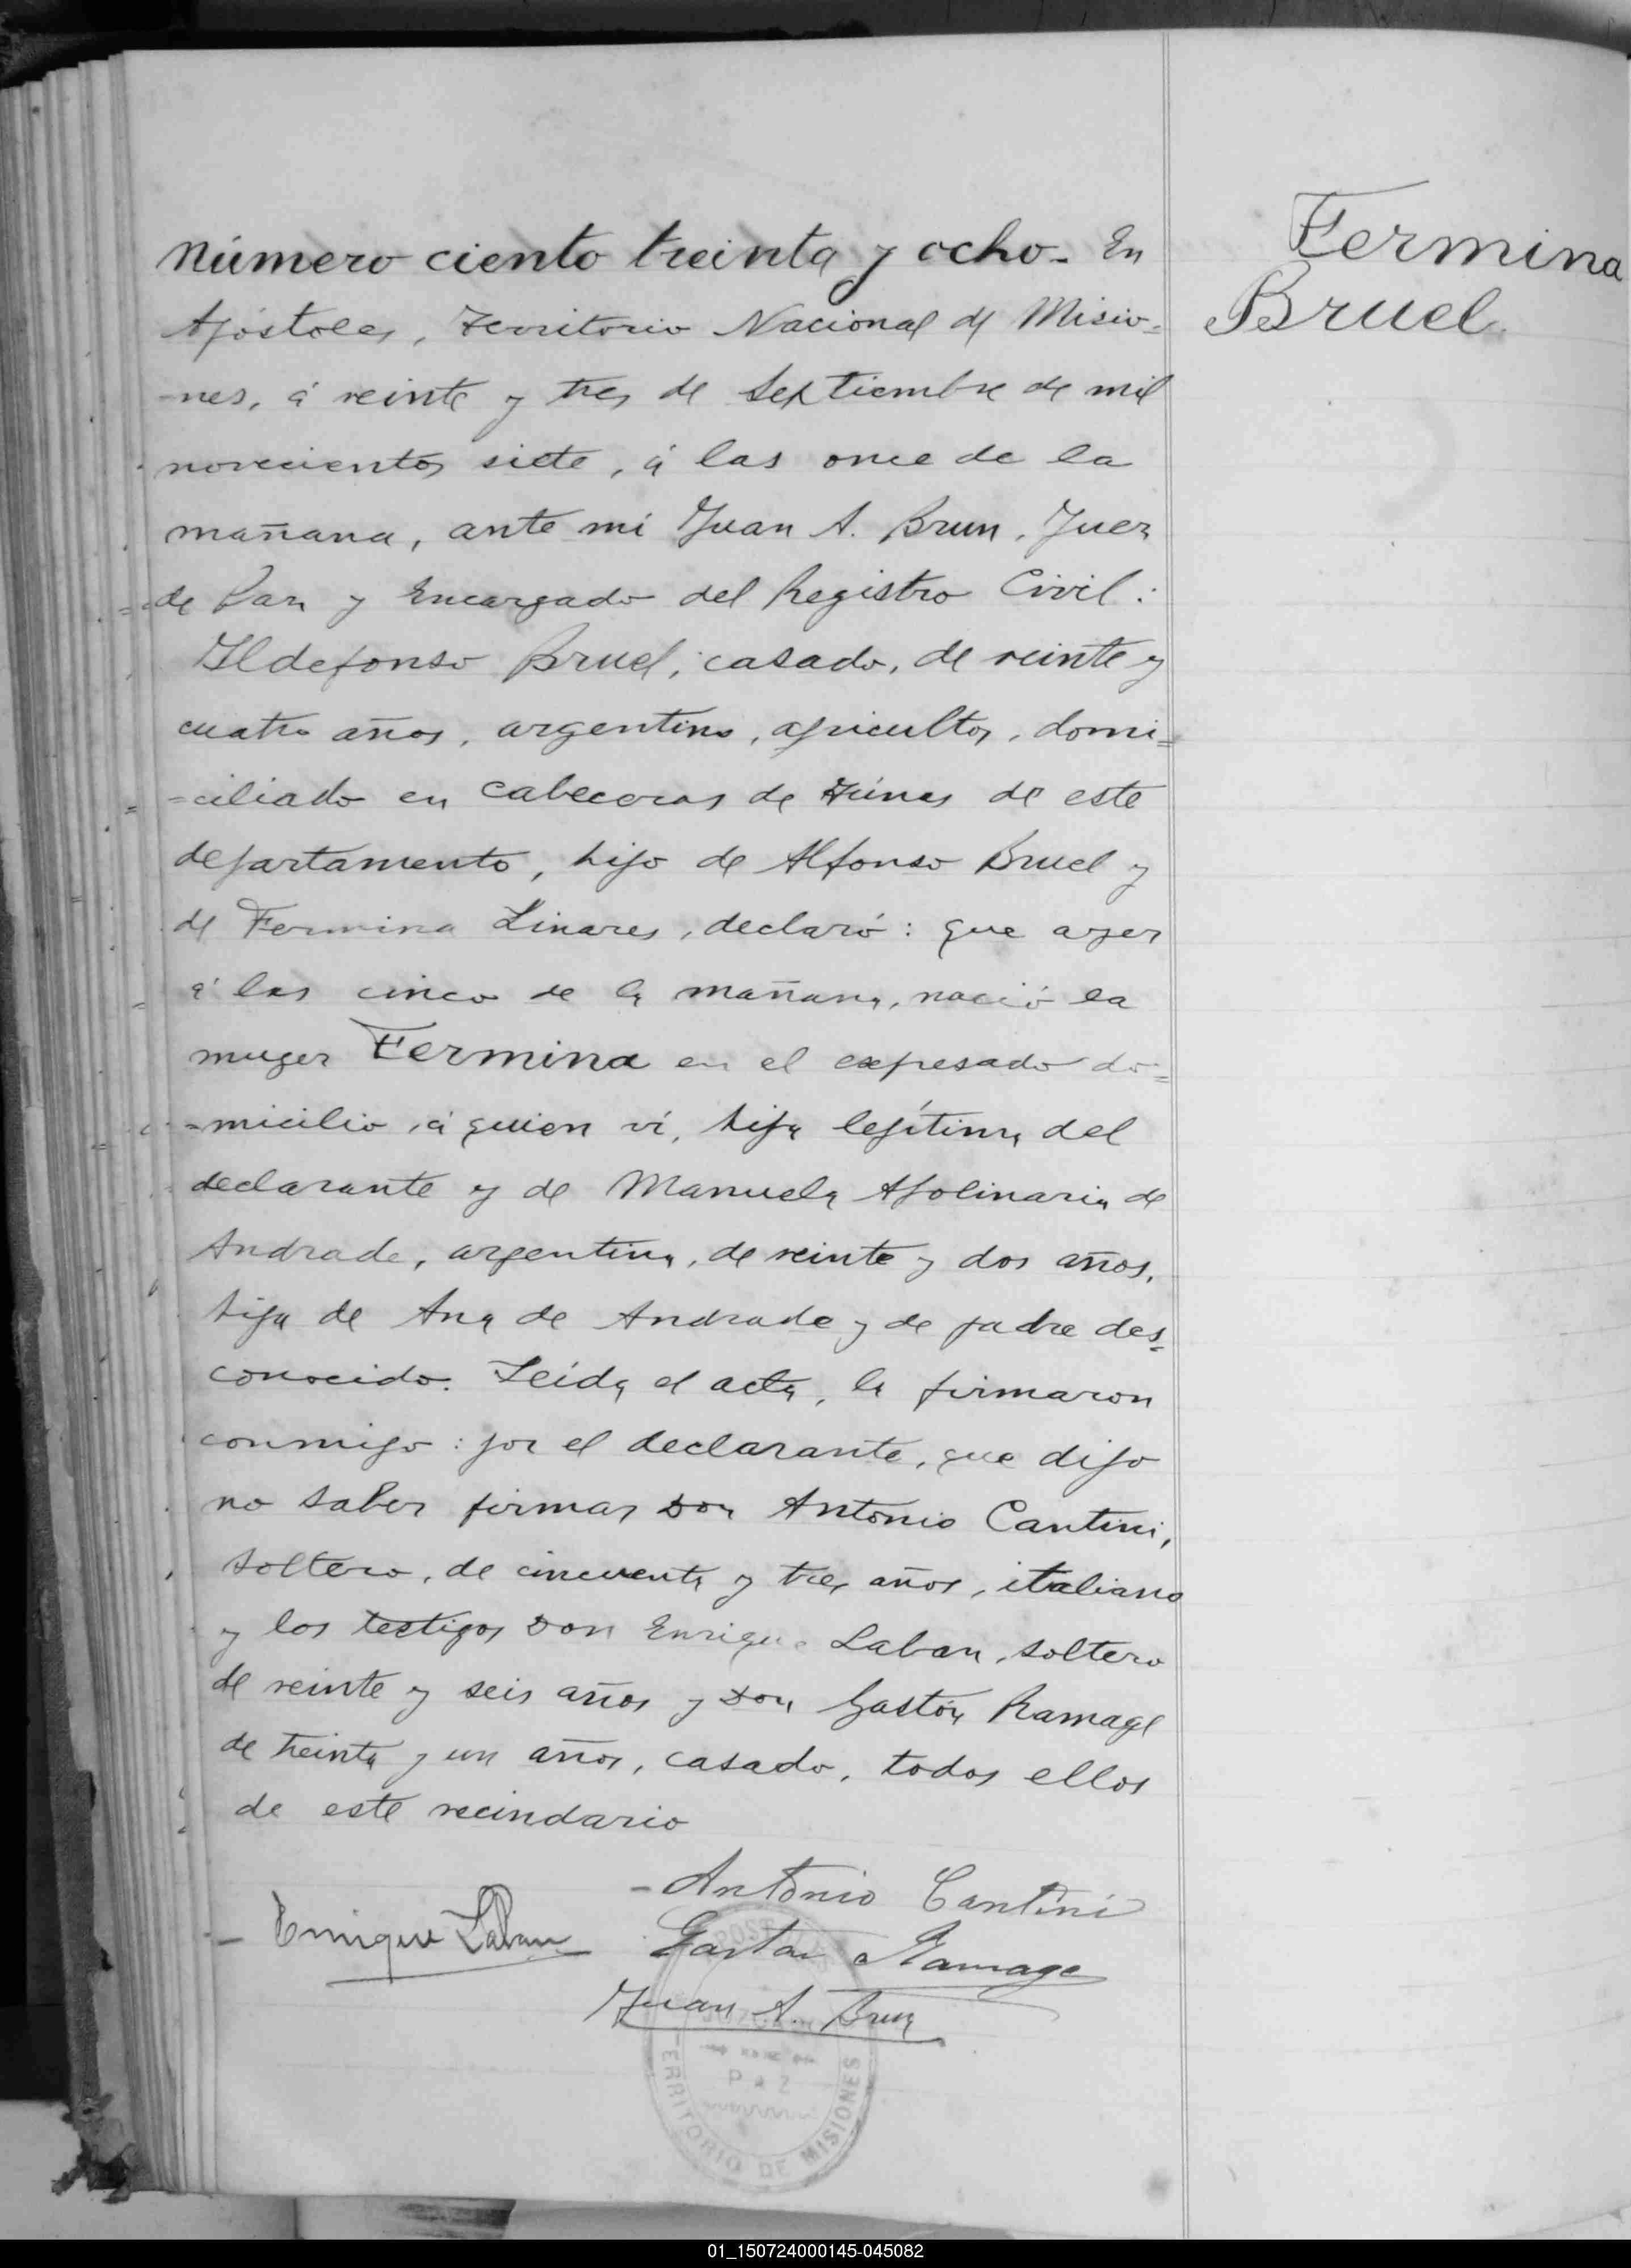 Fermina
Bruel.
Número ciento treinta y ocho. En
Apóstoles, Territorio Nacional de Misio=
-nes, á veinte y tres de Septiembre de mil
novecientos siete, á las once de la
mañana, ante mí Juan A. Brun, Juez
de Paz y Encargado del Registro Civil:
Ildefonso Bruel, casado, de veinte y
cuatro años, argentino, agricultor, domi=
=ciliado en cabeceras de de este
departamento, hijo de Alfonso Bruel y
de Fermina Linares, declaró: que ayer
á las cinco de la mañana, nació la
muger Fermina en el expresado do=
=micilio, á quien ví, hija legítima del
declarante y de Manuela Apolinaria de
Andrade, argentina, de veinte y dos años,
hija de Ana de Andrade y de padre des=
conocido. Leída el acta, la firmaron
conmigo: por el declarante, que dijo
no saber firmar Don Antonio Cantini,
soltero, de cincuenta y tres años, italiano
y los testigos Don Enrique Laban, soltero
de veinte y seis años y Don Gastón Ramage
de treinta y un años, casado, todos ellos
de este vecindario
- Antonio Cantini
- Enrique Laban
Gaston Ramage
Juan A. Brun
PAZ
TERRITORIO DE MISIONES
01_150724000145-045082